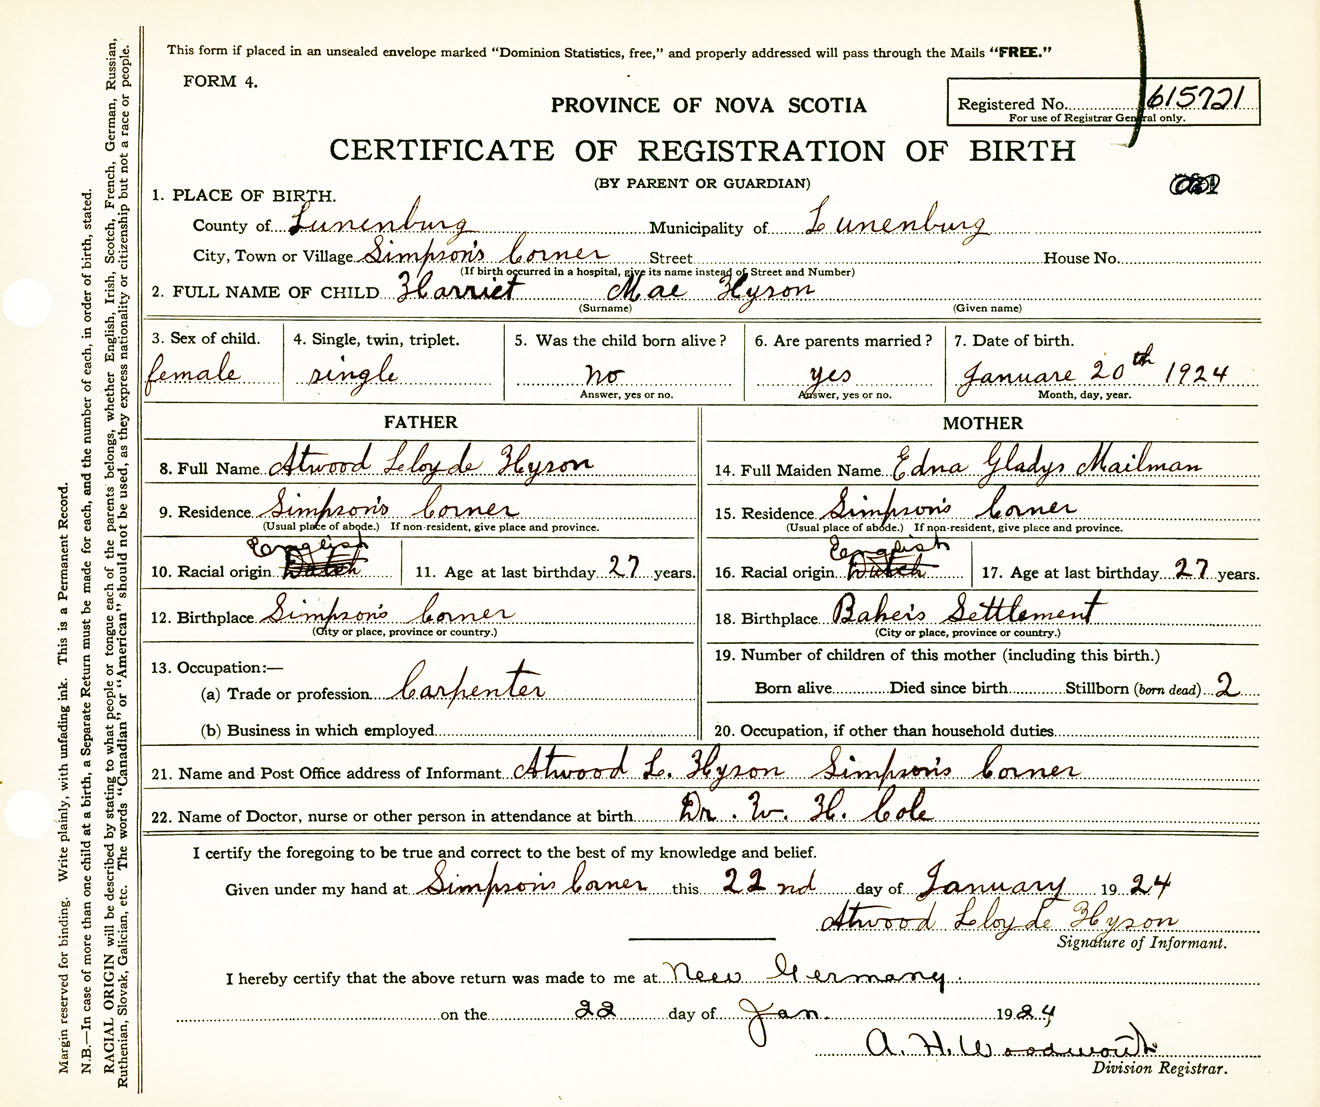 This form if placed in an unsealed envelope marked “Dominion Statistics, free,” and properly addressed will pass through the Mails “FREE.”
FORM 4.
PROVINCE OF NOVA SCOTIA
Registered No. 615721
For use of Registrar General only.
CERTIFICATE OF REGISTRATION OF BIRTH
(BY PARENT OR GUARDIAN)
1. PLACE OF BIRTH.
County of Lunenburg Municipality of Lunenburg
City, Town or Village Simpson's Corner Street House No.
(If birth occurred in a hospital, give its name instead of Street and Number)
2. FULL NAME OF CHILD Harriet Mae Hyson
(Surname) (Given name)
3. Sex of child. 4. Single, twin, triplet. 5. Was the child born alive? 6. Are parents married? 7. Date of birth.
female single no yes Januare 20th 1924
Answer, yes or no. Answer, yes or no. Month, day, year.
FATHER MOTHER
8. Full Name Atwood Lloyde Hyson 14. Full Maiden Name Edna Gladys Mailman
9. Residence Simpson's Corner 15. Residence Simpson's Corner
(Usual place of abode.) If non-resident, give place and province. (Usual place of abode.) If non-resident, give place and province.
English English
10. Racial origin Dutch 11. Age at last birthday 27 years. 16. Racial origin Dutch 17. Age at last birthday 27 years.
12. Birthplace Simpson's Corner 18. Birthplace Baker's Settlement
(City or place, province or country.) (City or place, province or country.)
13. Occupation:— 19. Number of children of this mother (including this birth.)
(a) Trade or profession Carpenter Born alive Died since birth Stillborn (born dead) 2
(b) Business in which employed 20. Occupation, if other than household duties
21. Name and Post Office address of Informant Atwood L. Hyson Simpson's Corner
22. Name of Doctor, nurse or other person in attendance at birth Dr. W. H. Cole
I certify the foregoing to be true and correct to the best of my knowledge and belief.
Given under my hand at Simpson's Corner this 22nd day of January 1924
Atwood Lloyde Hyson
Signature of Informant.
I hereby certify that the above return was made to me at New Germany.
on the 22 day of Jan. 1924
A. H. Woodworth
Division Registrar.
Margin reserved for binding. Write plainly, with unfading ink. This is a Permanent Record.
N.B.—In case of more than one child at a birth, a Separate Return must be made for each, and the number of each, in order of birth, stated.
RACIAL ORIGIN will be described by stating to what people or tongue each of the parents belongs, whether English, Irish, Scotch, French, German, Russian,
Ruthenian, Slovak, Galician, etc. The words “Canadian” or “American” should not be used, as they express nationality or citizenship but not a race or people.